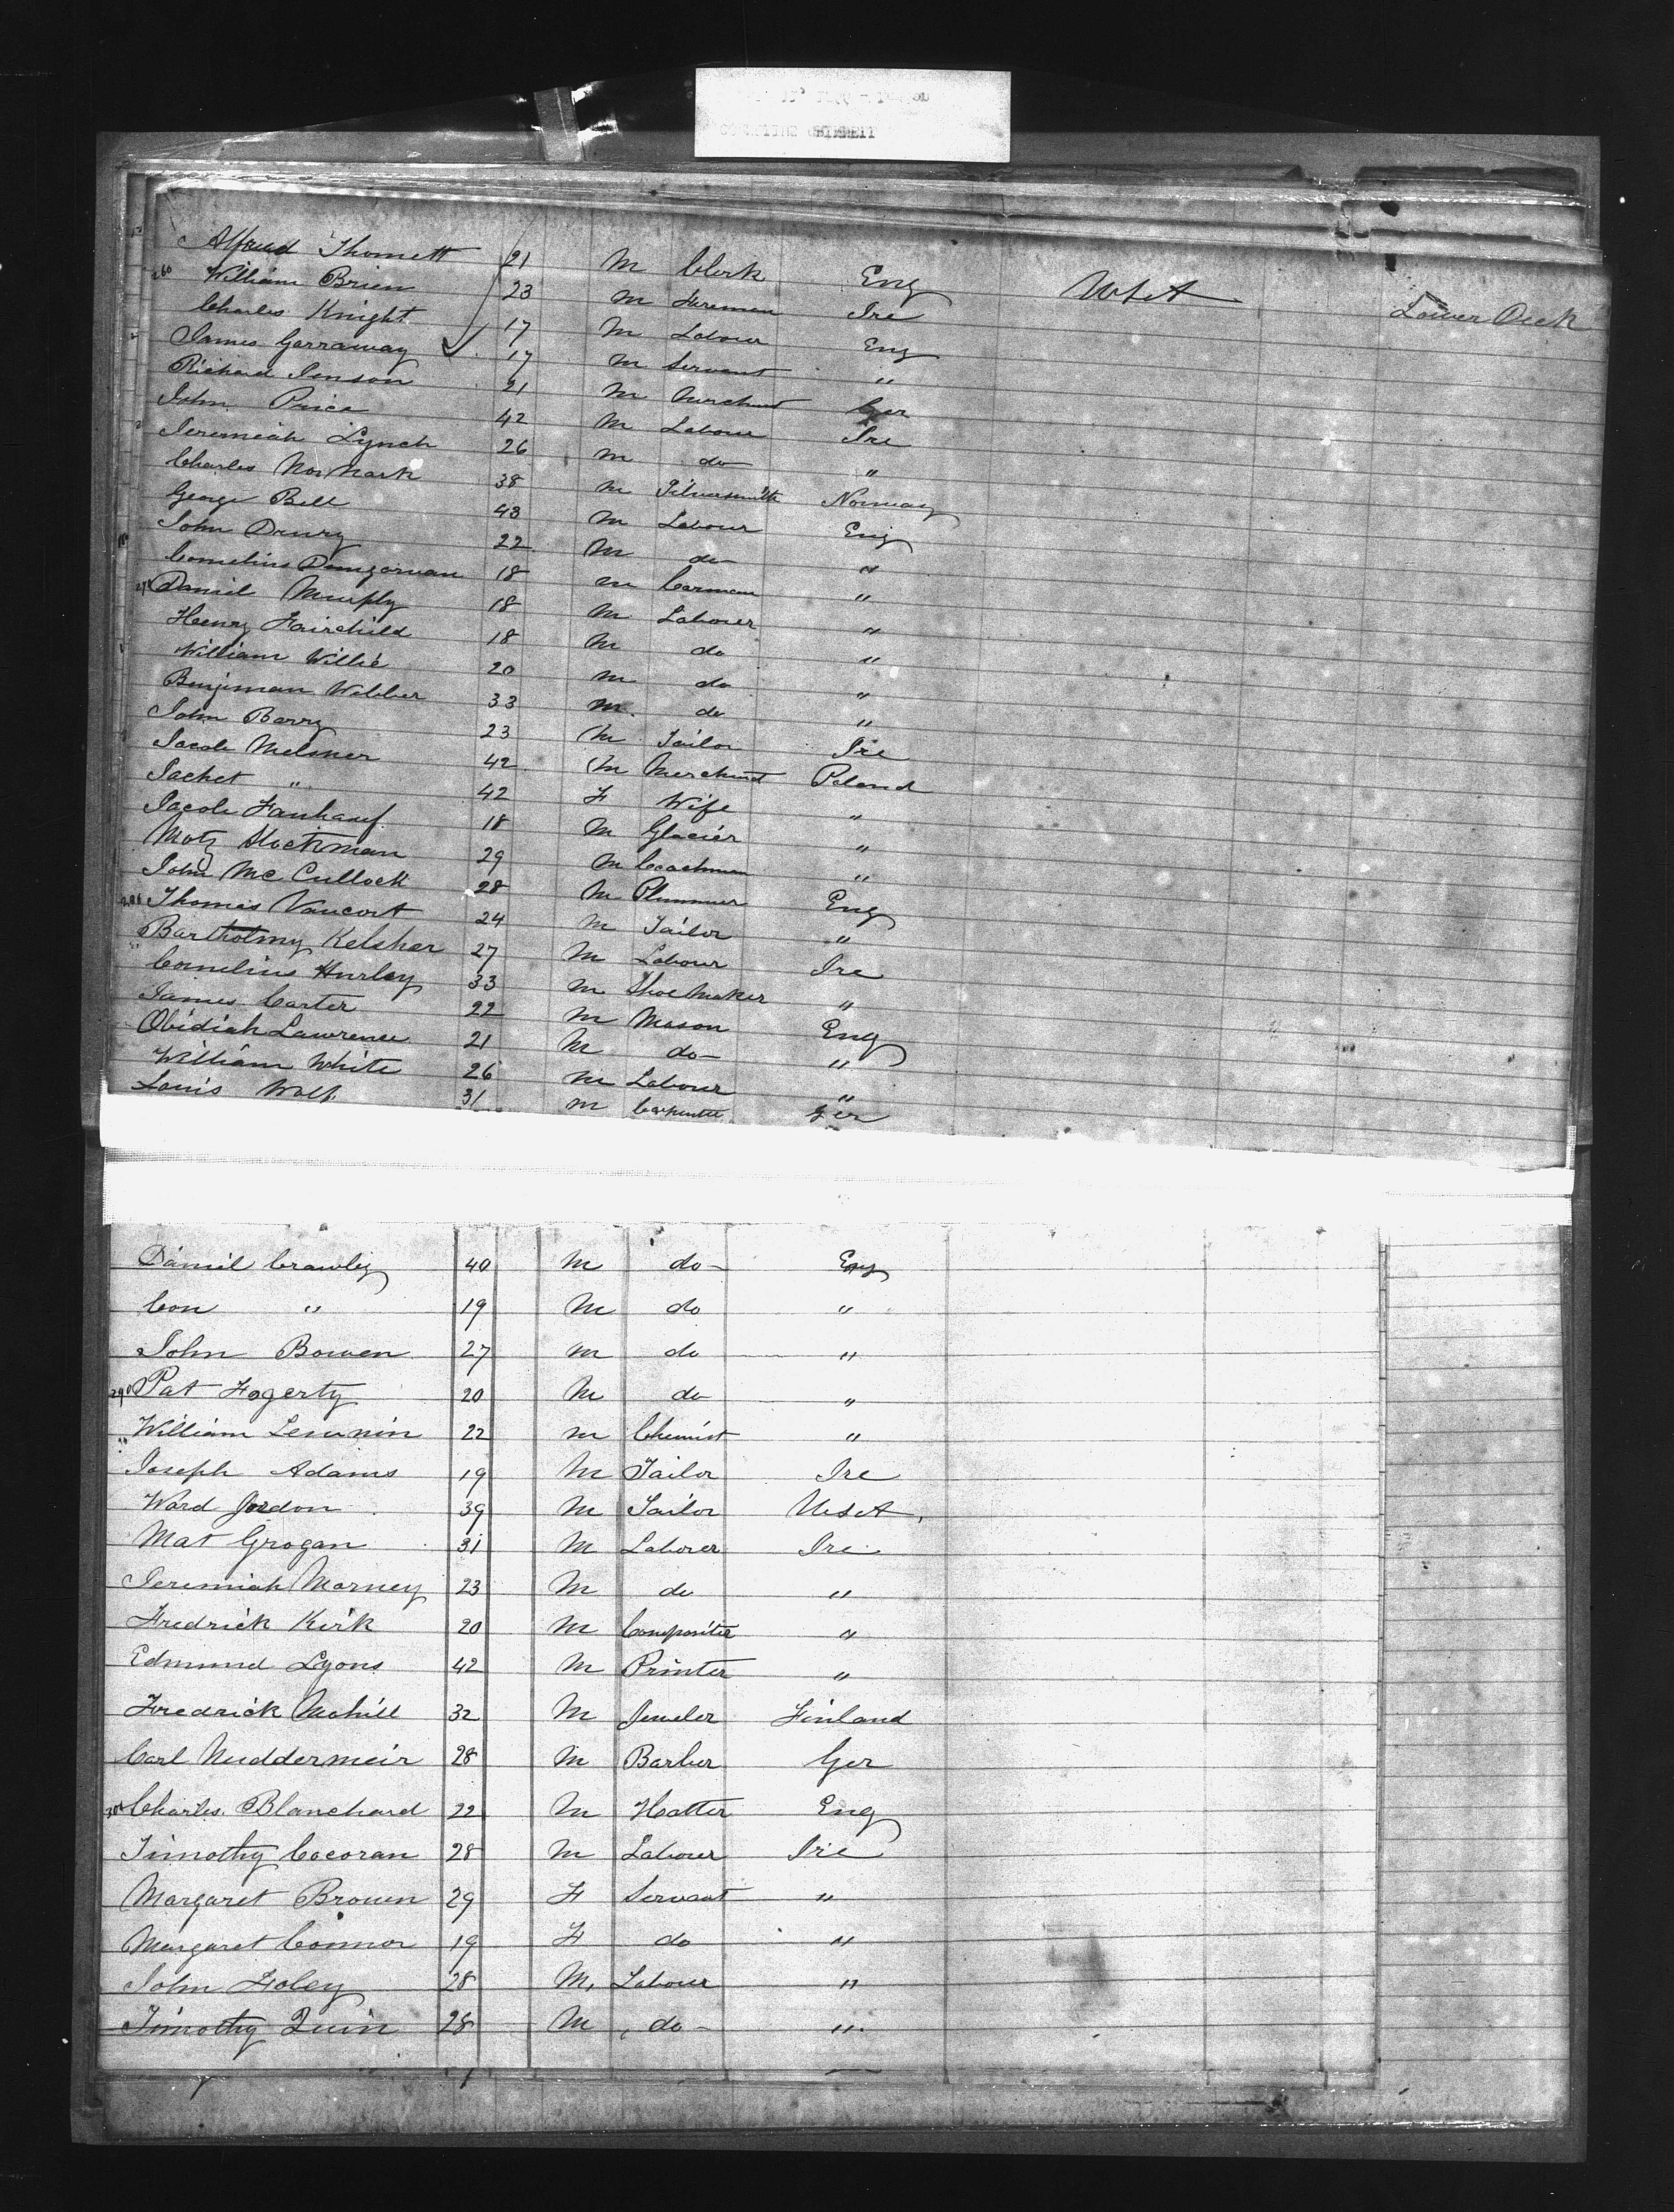 Alfread Thomett 21 M Clerk Eng U S A Lower Deck
260 William Brien 23 M Fireman Ire
Charles Knight 17 M Labour Eng
James Garraway 17 M Servant "
Richard Janson 21 M Merchant Ger
John Price 42 M Labour Ire
Jeremiah Lynch 26 M do "
Charles Nor Mark 38 M Silversmith Norway
George Bell 43 M Labour Eng
John Drury 22 M do "
Cornelius Dungarvan 18 M Carman "
Daniel Murphy 18 M Labourer "
Henry Fairchild 18 M do "
William Willie 20 M do "
Benjiman Webber 33 M do "
John Barry 23 M Tailor Ire
Jacob Melsner 42 M Merchant Poland
Jachet " 42 F Wife "
Jacob Fanhauf 18 M Glacier "
Motz Stockman 29 M Coachman "
John McCullock 28 M Plummer Eng
Thomas Vancort 24 M Tailor "
Bartholmy Kelsher 27 M Labour Ire
Cornelius Hurley 33 M Shoe Maker "
James Carter 22 M Mason Eng
Obidiah Lawrence 21 M do "
William White 26 M Labour "
Louis Wolf 31 M Carpenter Ger
Daniel Crawley 40 M do Eng
Con " 19 M do "
John Bowen 27 M do "
290 Pat Fogerty 20 M do "
William 22 M Chemist "
Joseph Adams 19 M Tailor Ire
Ward Jordon 39 M Tailor U S A
Mat Grogan 31 M Laborer Ire
Jeremiah Marney 23 M do "
Fredrick Kirk 20 M Compositer "
Edmund Lyons 42 M Printer "
Fredrick Mohill 32 M Jeweler Finland
Carl Nuddermeir 28 M Barber Ger
300 Charles Blanchard 22 M Hatter Eng
Timothy Cocoran 28 M Labour Ire
Margaret Brown 29 F Servant "
Margaret Connor 19 F do "
John Foley 28 M Labour "
Timothy Quin 28 M do "